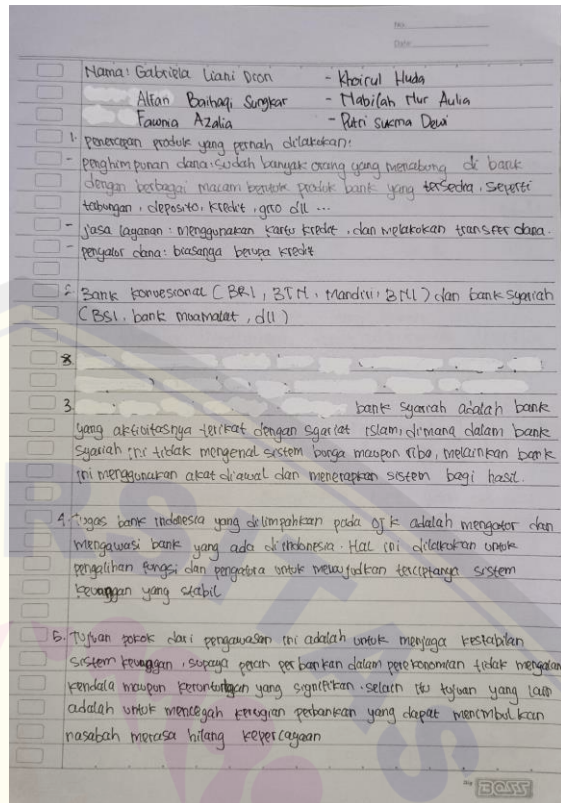 No.
Date
Nama: Gabriela Liani Dron - Khoirul Huda
Alfan Baihaqi Sungkar - Nabilah Nur Aulia
Fawnia Azalia - Putri Sukma Dewi
1. penerapan produk yang pernah dilakukan:
- penghimpunan dana: sudah banyak orang yang menabung di bank
dengan berbagai macam bentuk produk bank yang tersedia, seperti
tabungan, deposito, kredit, giro dll ...
- jasa layanan: menggunakan kartu kredit, dan melakukan transfer dana.
- penyalur dana: biasanya berupa kredit
2. Bank konvesional (BRI, BTN, Mandiri, BNI) dan bank syariah
(BSI, bank muamalat, dll)
8.
3. bank syariah adalah bank
yang aktivitasnya terikat dengan syariat Islam, dimana dalam bank
syariah ini tidak mengenal sistem bunga maupun riba, melainkan bank
ini menggunakan akat diawal dan menerapkan sistem bagi hasil.
4. Tugas bank indonesia yang dilimpahkan pada OJK adalah mengatur dan
mengawasi bank yang ada di indonesia. Hal ini dilakukan untuk
pengalihan fungsi dan pengatura untuk mewujudkan terciptanya sistem
keuangan yang stabil
5. Tujuan pokok dari pengawasan ini adalah untuk menjaga kestabilan
sistem keuangan, supaya peran perbankan dalam perekonomian tidak mengalami
kendala maupun keruntuhan yang signifikan. selain itu tujuan yang lain
adalah untuk mencegah kerugian perbankan yang dapat menimbulkan
nasabah merasa hilang kepercayaan
BOSS
RSITAS